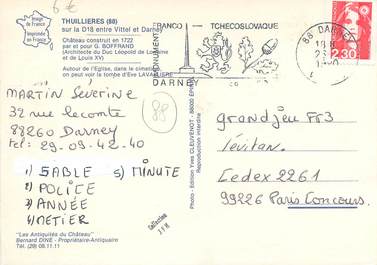 6 €
Image de France
Imprimée en France
THUILLIERES (88)
sur la D18 entre Vittel et Darney
Château construit en 1722
par et pour G. BOFFRAND
(Architecte du Duc Léopold de Lorraine
et de Louis XV)
Autour de l'Eglise, dans le cimetière,
on peut voir la tombe d'Eve LAVALLIERE
MARTIN Severine
32 rue lecomte
88260 Darney
tel: 29-09-42-40
88
1) SABLE 5) MINUTE
2) POLICE
3) ANNÉE
4) METIER
"Les Antiquités du Château"
Bernard DINE - Propriétaire-Antiquaire
Tél. (29) 08.11.11
Photo - Edition Yves CLEUVENOT - 88000 EPINAL
Reproduction interdite
Collection
MONUMENT
FRANCO — TCHECOSLOVAQUE
DARNEY
88 DARNEY
2,30
grandjeu FR3
Lévitan.
Cedex 2261
99226 Paris Concours.